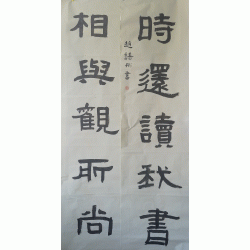 時還讀我書
相與觀所尚